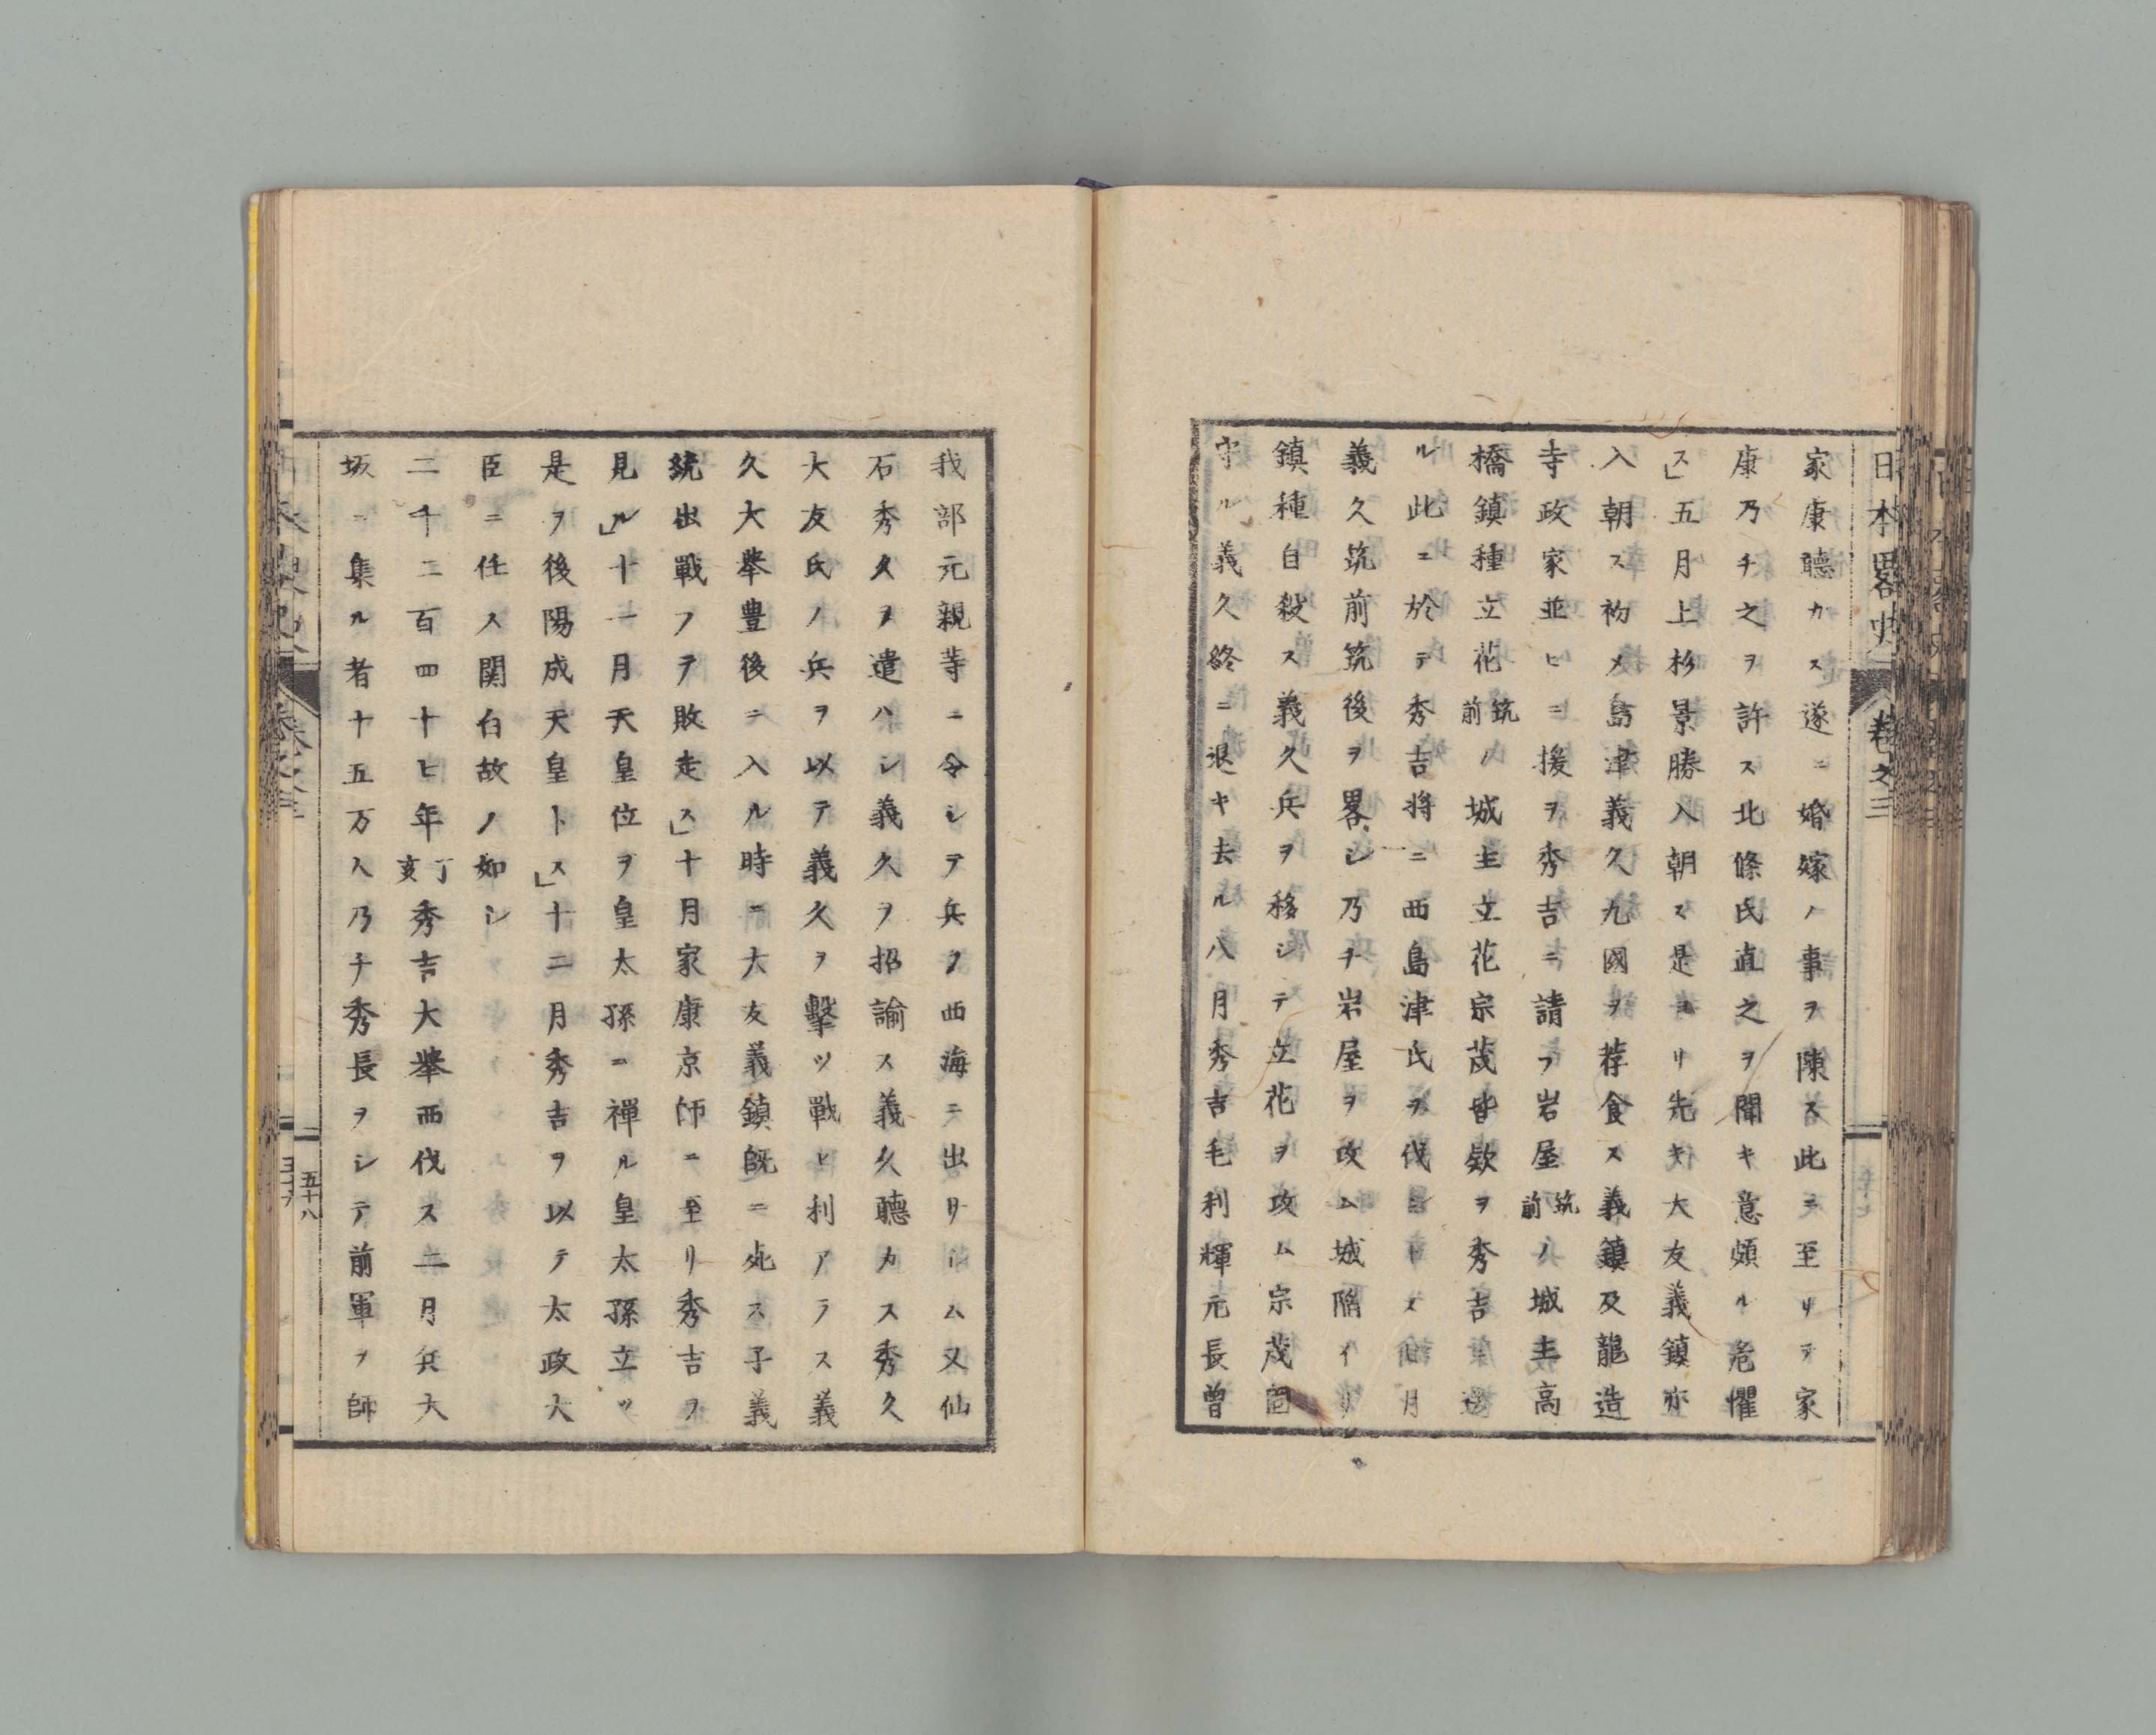 日本畧史 卷之三
家康聽カス遂ニ婚嫁ノ事ヲ陳ス此ニ至リテ家
康乃チ之ヲ許ス北條氏直之ヲ聞キ意頗ル危懼
ス」五月上杉景勝入朝ス是ヨリ先キ大友義鎮亦
入朝ス初メ島津義久九國ヲ荐食ス義鎮及龍造
寺政家並ヒニ援ヲ秀吉ニ請フ岩屋筑前ノ城主高
橋鎮種立花筑前ノ城主立花宗茂皆欵ヲ秀吉ニ送
ル此ニ於テ秀吉將ニ西島津氏ヲ伐ントス 月
義久筑前筑後ヲ畧シ乃チ岩屋ヲ攻ム城陥イリ
鎮種自殺ス義久兵ヲ移シテ立花ヲ攻ム宗茂固
守ル義久終ニ退キ去ル八月秀吉毛利輝元長曽
我部元親等ニ令シテ兵ヲ西海ニ出サシム又仙
石秀久ヲ遣ハシ義久ヲ招諭ス義久聽カス秀久
大友氏ノ兵ヲ以テ義久ヲ擊ツ戰ヒ利アラス義
久大擧豊後ニ入ル時ニ大友義鎮既ニ死ス子義
統出戰フヲ敗走ス」十月家康京師ニ至リ秀吉ヲ
見ル」十一月天皇位ヲ皇太孫ニ禪ル皇太孫立ツ
是ヲ後陽成天皇トス」十二月秀吉ヲ以テ太政大
臣ニ任ス関白故ノ如シ
二千二百四十七年丁亥秀吉大擧西伐ス二月兵大
坂ニ集ル者十五万人乃チ秀長ヲシテ前軍ヲ師
五十八